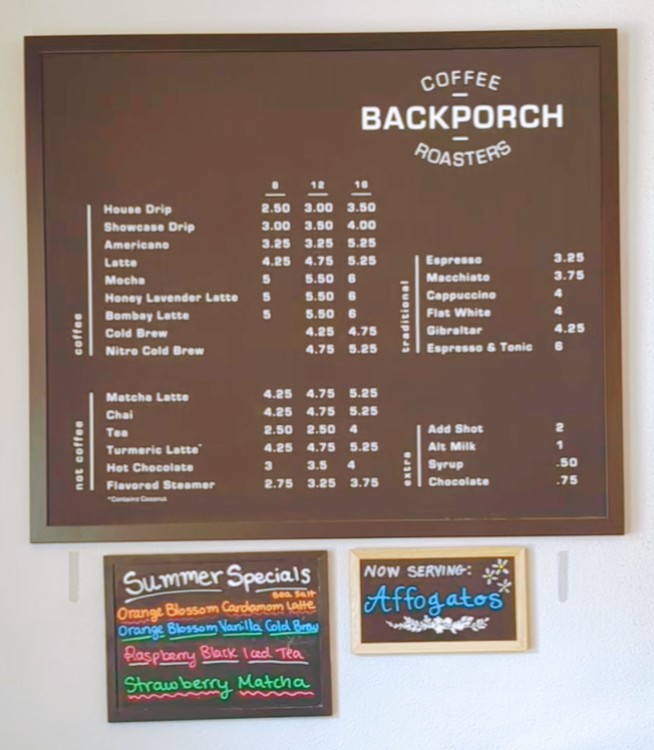 COFFEE
BACKPORCH
ROASTERS
8 12 16
coffee
House Drip 2.50 3.00 3.50
Showcase Drip 3.00 3.50 4.00
Americano 3.25 3.25 5.25
Latte 4.25 4.75 5.25
Mocha 5 5.50 6
Honey Lavender Latte 5 5.50 6
Bombay Latte 5 5.50 6
Cold Brew 4.25 4.75
Nitro Cold Brew 4.75 5.25
traditional
Espresso 3.25
Macchiato 3.75
Cappuccino 4
Flat White 4
Gibraltar 4.25
Espresso & Tonic 6
not coffee
Matcha Latte 4.25 4.75 5.25
Chai 4.25 4.75 5.25
Tea 2.50 2.50 4
Turmeric Latte* 4.25 4.75 5.25
Hot Chocolate 3 3.5 4
Flavored Steamer 2.75 3.25 3.75
*Contains Coconut
extra
Add Shot 2
Alt Milk 1
Syrup .50
Chocolate .75
Summer Specials
Sea Salt
Orange Blossom Cardamom Latte
Orange Blossom Vanilla Cold Brew
Raspberry Black Iced Tea
Strawberry Matcha
NOW SERVING:
Affogatos